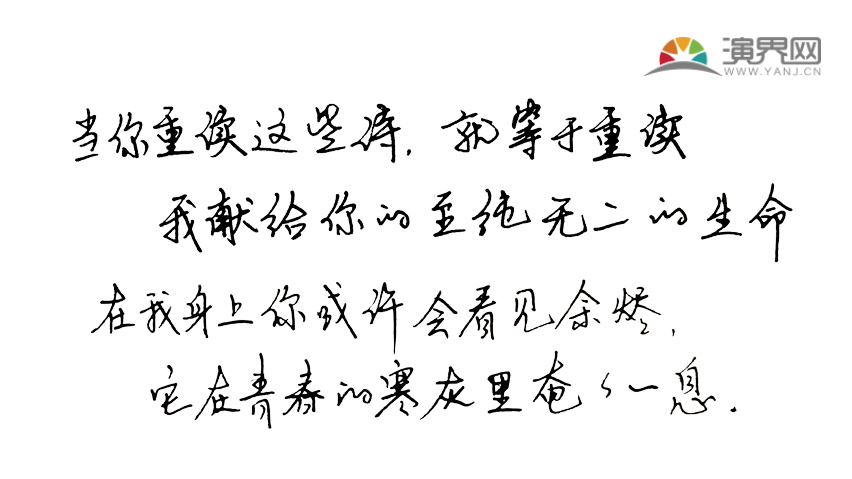 演界网
WWW.YANJ.CN
当你重读这些诗，就等于重读
我献给你的至纯无二的生命
在我身上你或许会看见余烬，
它在青春的寒灰里奄々一息．